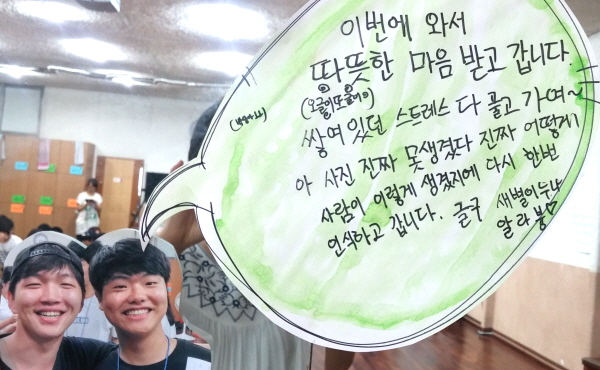 이번에 와서
따뜻한 마음 받고 갑니다.
쌓여 있던 스트레스 다 풀고 가여~
아 사진 진짜 못생겼다 진짜 어떻게
사람이 이렇게 생겼지에 다시 한번
인식하고 갑니다. 글구 새별이누나
알라붕♡